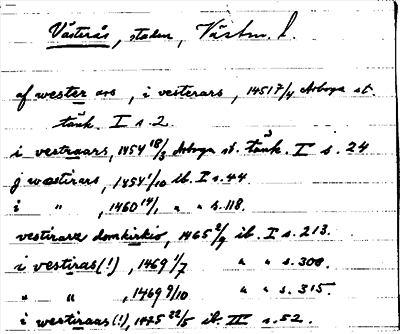 Västerås, staden, Västm. l.
af wester ars, i vesterars, 1451 7/4 Arboga st.
tänk. I s. 2.
i vestraars, 1454 18/3 Arboga st. tänk. I s. 24
j wæstirars, 1454 1/10 ib. I s. 44.
i " , 1460 14/1 " " s. 118.
vestirara domkirkio, 1465 2/9 ib. I s. 213.
i vestiras (!), 1469 1/7 " " s. 308.
" " , 1469 9/10 " " s. 315.
i westiraas (!), 1475 22/5 ib. II s. 52.